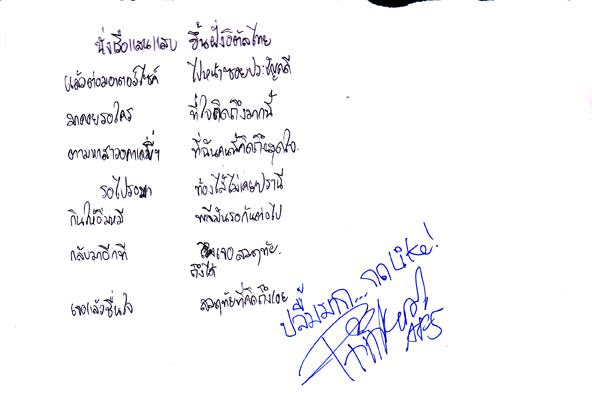 นั่งเรือแสนแสบ ขึ้นฝั่งอิตัลไทย
แล้วต่อมอเตอร์ไซค์ ไปหน้าซอยประชัญคดี
มาคอยรอใคร ที่ใจคิดถึงมากนี้
ตามหาสาว ที่ฉันคนนี้คิดถึงสุดใจ
รอไปรอมา ท้องไส้ไม่เคยปรานี
กินให้อิ่มหมี พีมันรอกันต่อไป
กลับมาอีกที เจอสมฤทัย
ถึงได้
เจอแล้วชื่นใจ สมฤทัยที่คิดถึงเธอ
ปลื้มมาก... กด Like!